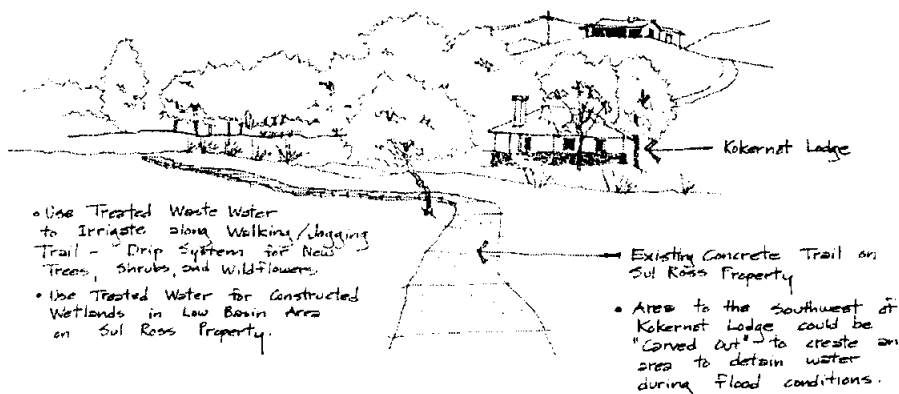 Kokernot Lodge
• Use Treated Waste Water
to Irrigate along Walking/Jogging
Trail - Drip System for New
Trees, Shrubs, and Wildflowers.
• Use Treated Water for Constructed
Wetlands in Low Basin Area
on Sul Ross Property.
Existing Concrete Trail on
Sul Ross Property
• Area to the Southwest of
Kokernot Lodge could be
"Carved Out" to create an
area to detain water
during flood conditions.